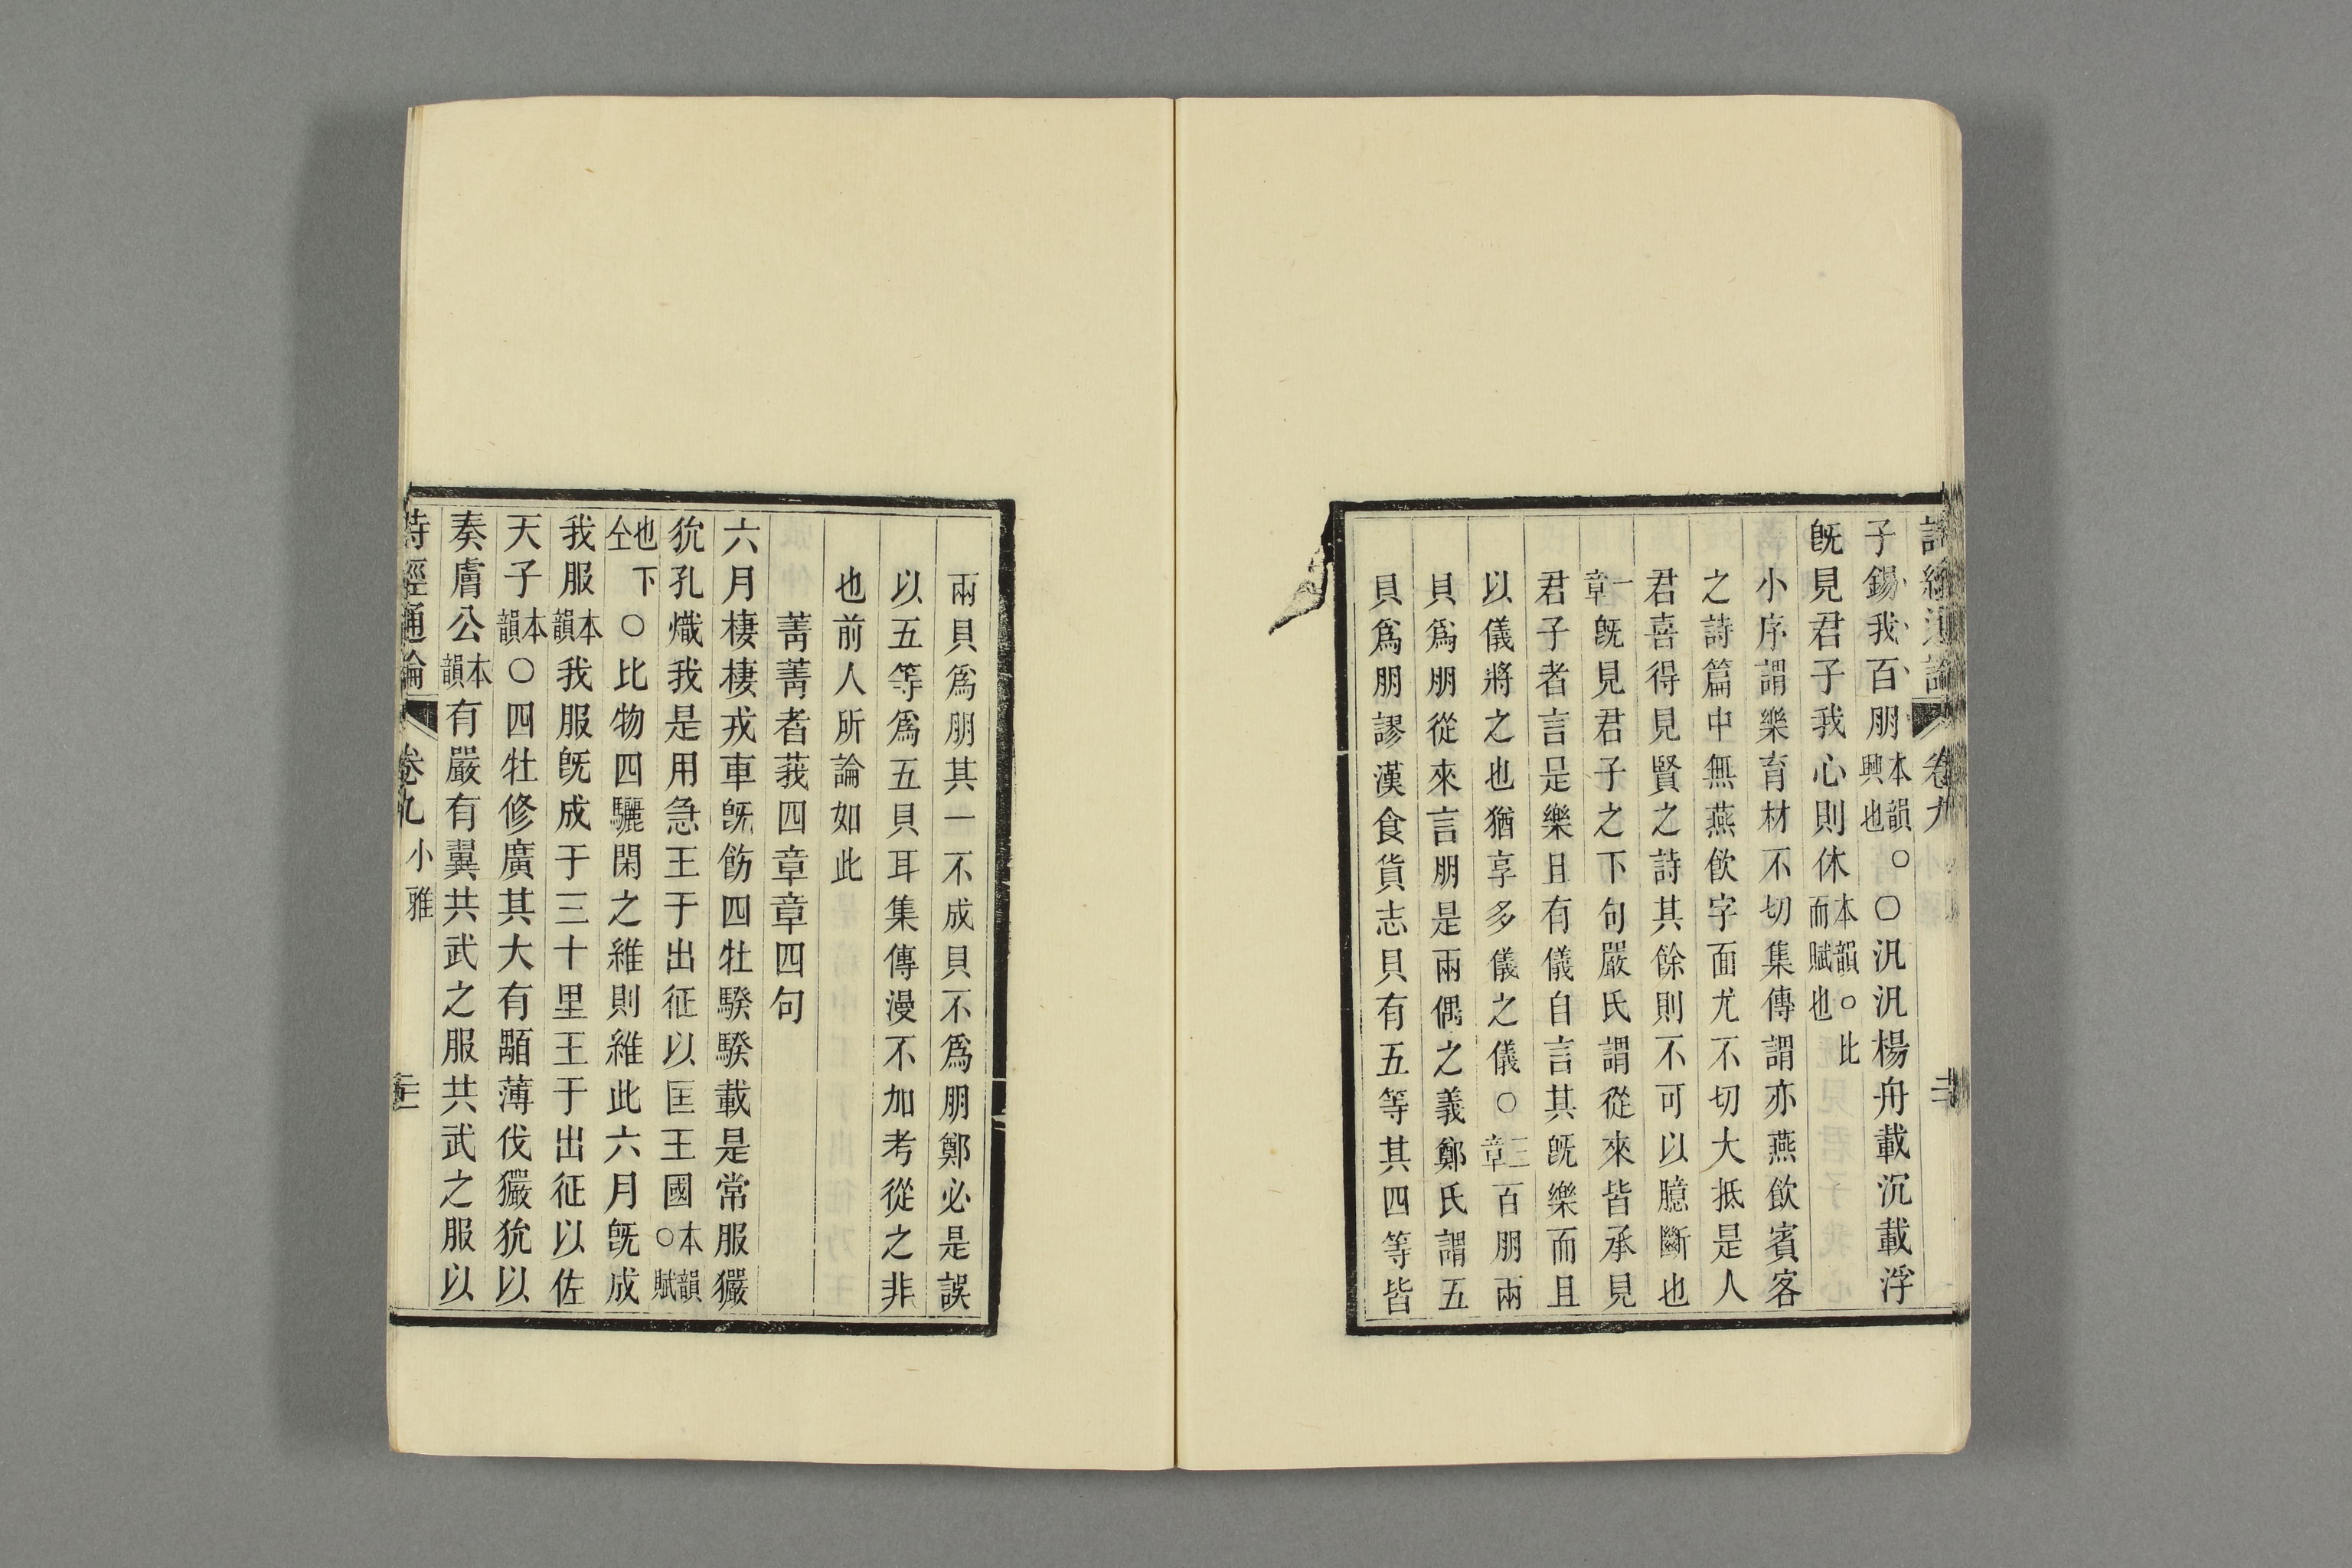 詩經通論 卷九
子錫我百朋本韻○興也○汎汎楊舟載沉載浮
旣見君子我心則休本韻○比而賦也
小序謂樂育材不切集傳謂亦燕飲賓客
之詩篇中無燕飲字面尤不切大抵是人
君喜得見賢之詩其餘則不可以臆斷也
一章旣見君子之下句嚴氏謂從來皆承見
君子者言是樂且有儀自言其旣樂而且
以儀將之也猶享多儀之儀○三章百朋兩
貝爲朋從來言朋是兩偶之義鄭氏謂五
貝爲朋謬漢食貨志貝有五等其四等皆
兩貝爲朋其一不成貝不爲朋鄭必是誤
以五等爲五貝耳集傳漫不加考從之非
也前人所論如此
菁菁者莪四章章四句
六月棲棲戎車旣飭四牡騤騤載是常服玁
狁孔熾我是用急王于出征以匡王國本韻○賦
也下仝○比物四驪閑之維則維此六月旣成
我服本韻我服旣成于三十里王于出征以佐
天子本韻○四牡修廣其大有顒薄伐玁狁以
奏膚公本韻有嚴有翼共武之服共武之服以
詩經通論 卷九 小雅